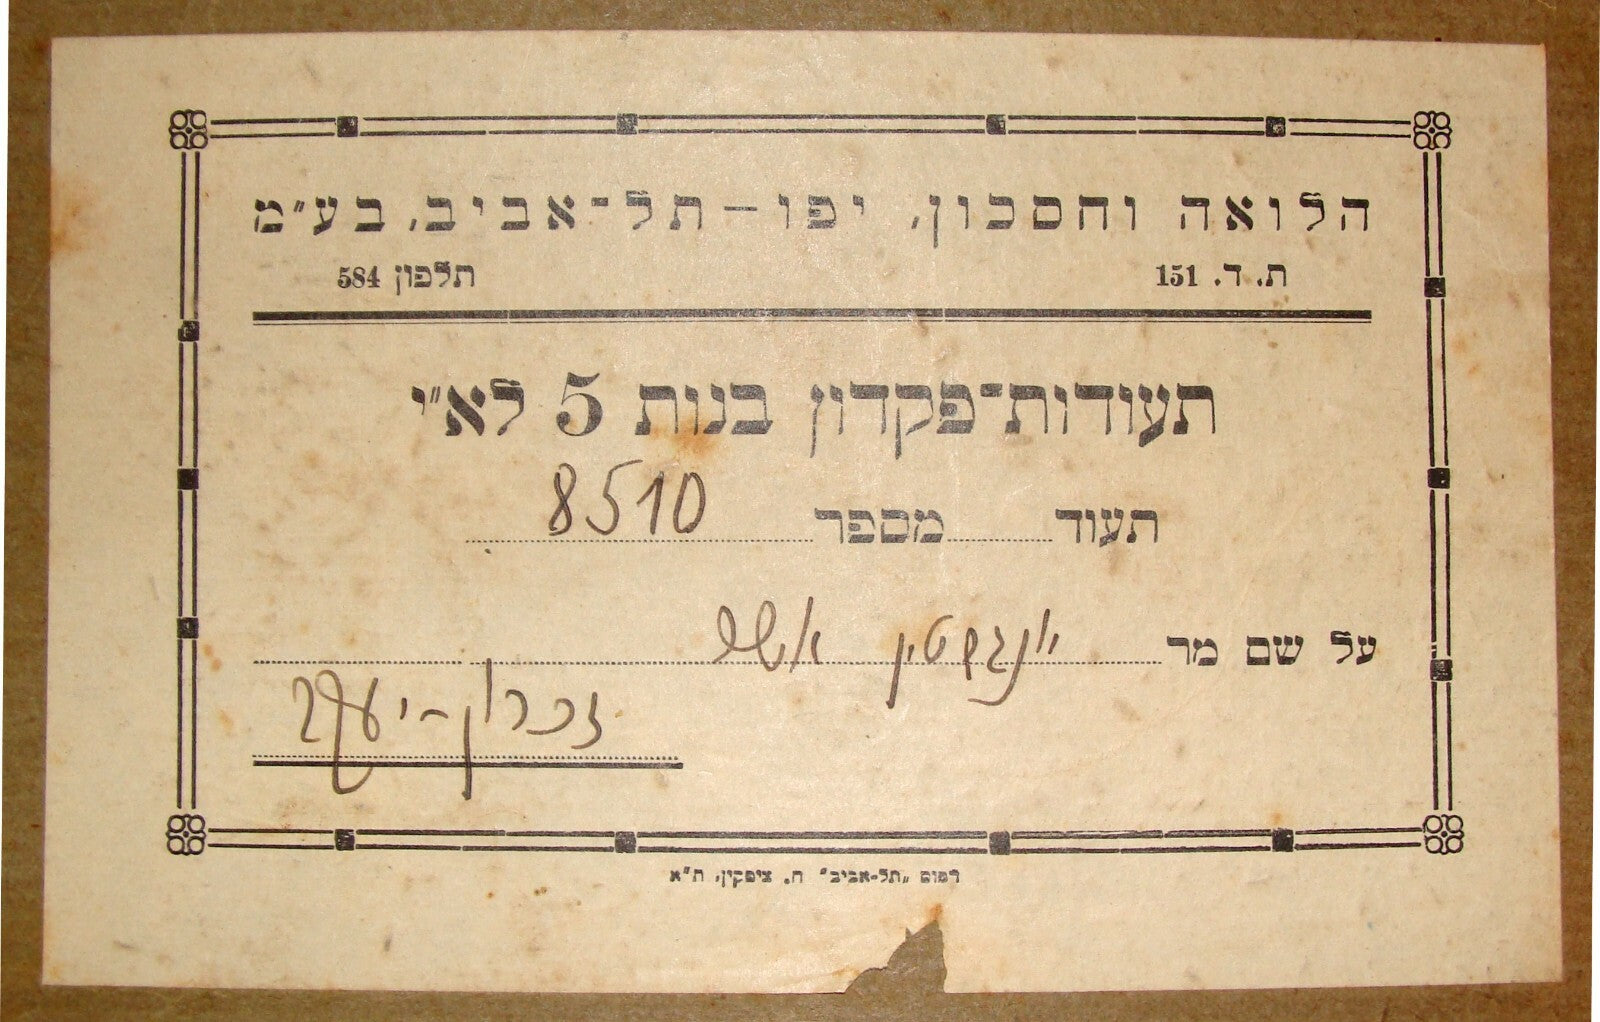 הלואה וחסכון, יפו–תל־אביב, בע״מ
ת. ד. 151 תלפון 584
תעודות־פקדון בנות 5 לא״י
תעוד מספר 8510
על שם מר אשר
זכרון-יעקב
דפוס „תל-אביב" ח. ציפקין, ת"א